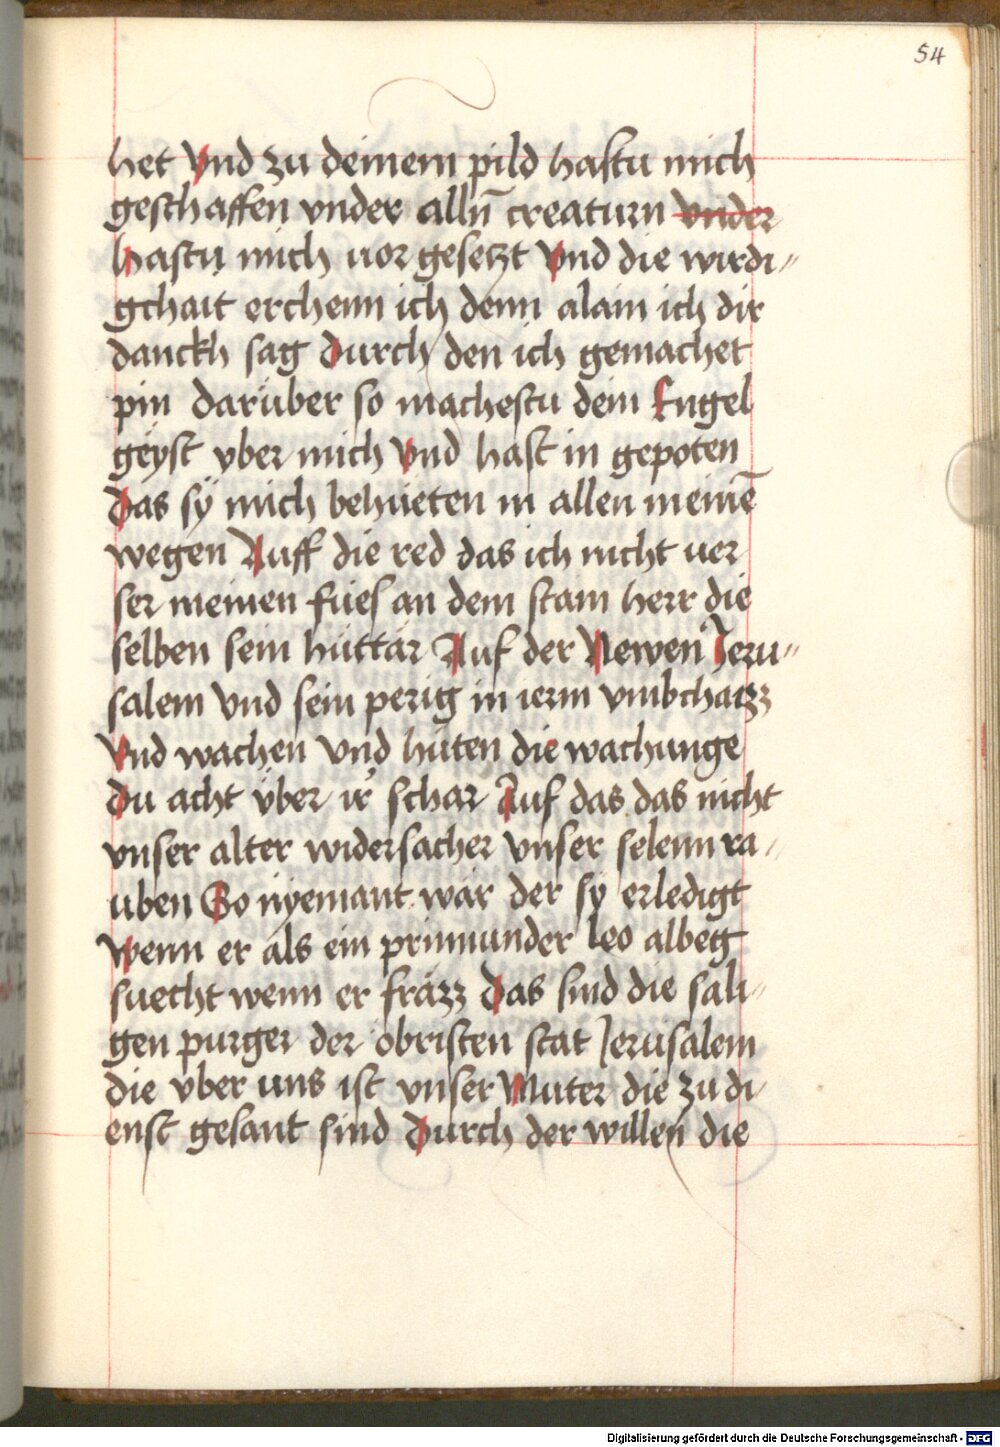 54
het Vnd zu deinem pild hastu mich
geschaffen vnder alln̄ creaturn vnder
hastu mich uor gesetzt Vnd die wirdi〃
gchait erchenn ich denn alain ich dir
danckh sag Durch den ich gemachet
pin darüber so machestu dein Engel
geÿst vber mich Vnd hast in gepoten
Das sÿ mich behüeten in allen meinē
wegen Auff die red das ich nicht uer
ser meinen fües an dem stain herr die
selben sein hüttär Auf der Newen Jeru〃
salem Vnd sein perig in ierm vmbchaizz
Vnd wachen Vnd hüten die wachunge
Du acht über ir schar Auf das das nicht
vnser alter widersacher Vnser selenn ra〃
uben So nyemant wär der sÿ erledigt
Wenn er als ein primmunder leo albeg
suecht wenn er fräzz Das sind die sali〃
gen purger der obristen stat Jerusalem
die vber uns ist vnser Muter die zu di〃
enst gesant sind Durch der willen die
Digitalisierung gefördert durch die Deutsche Forschungsgemeinschaft - DFG